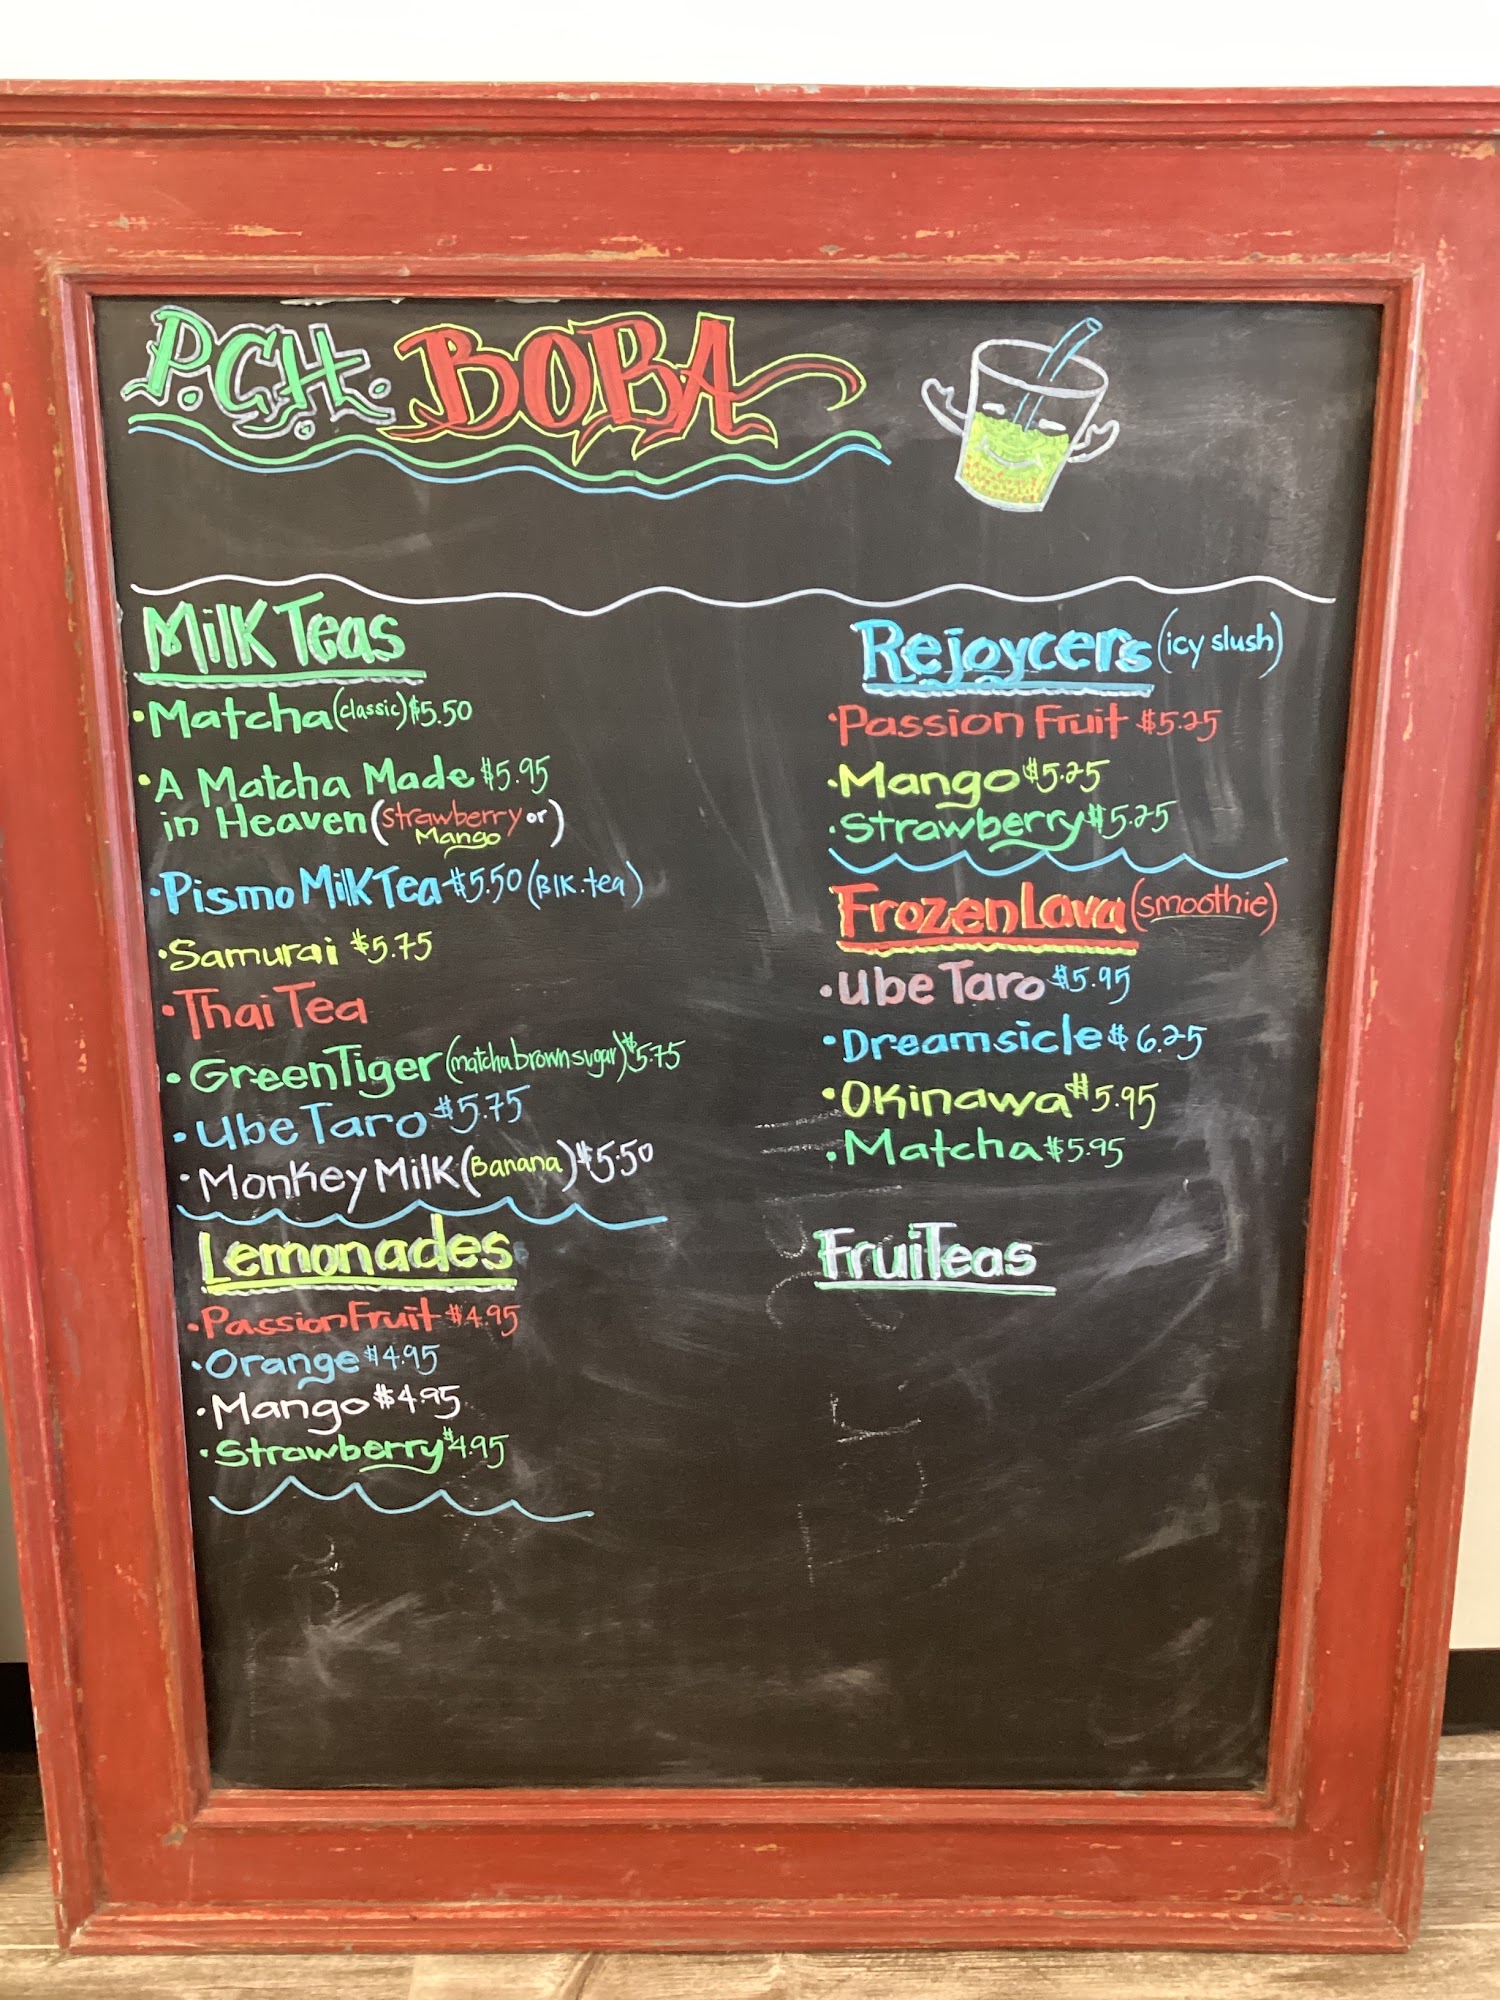 P.C.H. BOBA
Milk Teas
• Matcha (classic) $5.50
• A Matcha Made $5.95
in Heaven (Strawberry or
Mango)
• Pismo Milk Tea $5.50 (Blk. tea)
• Samurai $5.75
• Thai Tea
• Green Tiger (matcha brown sugar) $5.75
• Ube Taro $5.75
• Monkey Milk (Banana) $5.50
Lemonades
• Passion Fruit $4.95
• Orange $4.95
• Mango $4.95
• Strawberry $4.95
Rejoycers (icy slush)
• Passion Fruit $5.25
• Mango $5.25
• Strawberry $5.25
Frozen Lava (smoothie)
• Ube Taro $5.95
• Dreamsicle $6.25
• Okinawa $5.95
• Matcha $5.95
FruiTeas